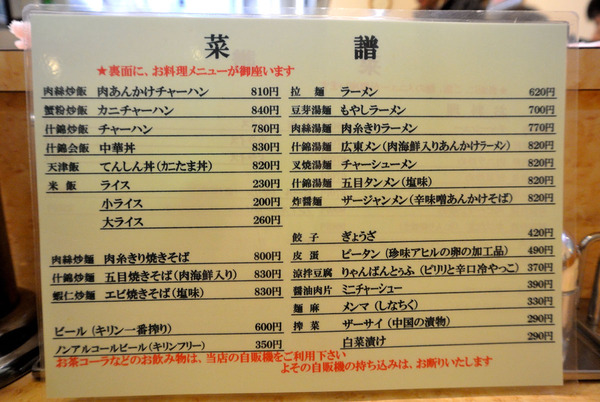 菜譜
★裏面に、お料理メニューが御座います
肉絲炒飯 肉あんかけチャーハン 810円
蟹粉炒飯 カニチャーハン 840円
什錦炒飯 チャーハン 780円
什錦会飯 中華丼 830円
天津飯 てんしん丼(カニたま丼) 820円
米飯 ライス 230円
小ライス 200円
大ライス 260円
肉絲炒麺 肉糸きり焼きそば 800円
什錦炒麺 五目焼きそば(肉海鮮入り) 830円
蝦仁炒麺 エビ焼きそば(塩味) 830円
ビール(キリン一番搾り) 600円
ノンアルコールビール(キリンフリー) 350円
拉麺 ラーメン 620円
豆芽湯麺 もやしラーメン 700円
肉絲湯麺 肉糸きりラーメン 770円
什錦湯麺 広東メン(肉海鮮入りあんかけラーメン) 820円
叉焼湯麺 チャーシューメン 820円
什錦湯麺 五目タンメン(塩味) 820円
炸醤麺 ザージャンメン(辛味噌あんかけそば) 820円
餃子 ぎょうざ 420円
皮蛋 ピータン(珍味アヒルの卵の加工品) 490円
涼拌豆腐 りゃんばんとうふ(ピリリと辛口冷やっこ) 370円
醤油肉片 ミニチャーシュー 390円
麺麻 メンマ(しなちく) 330円
搾菜 ザーサイ(中国の漬物) 290円
白菜漬け 290円
お茶コーラなどのお飲み物は、当店の自販機をご利用下さい
よその自販機の持ち込みは、お断りいたします